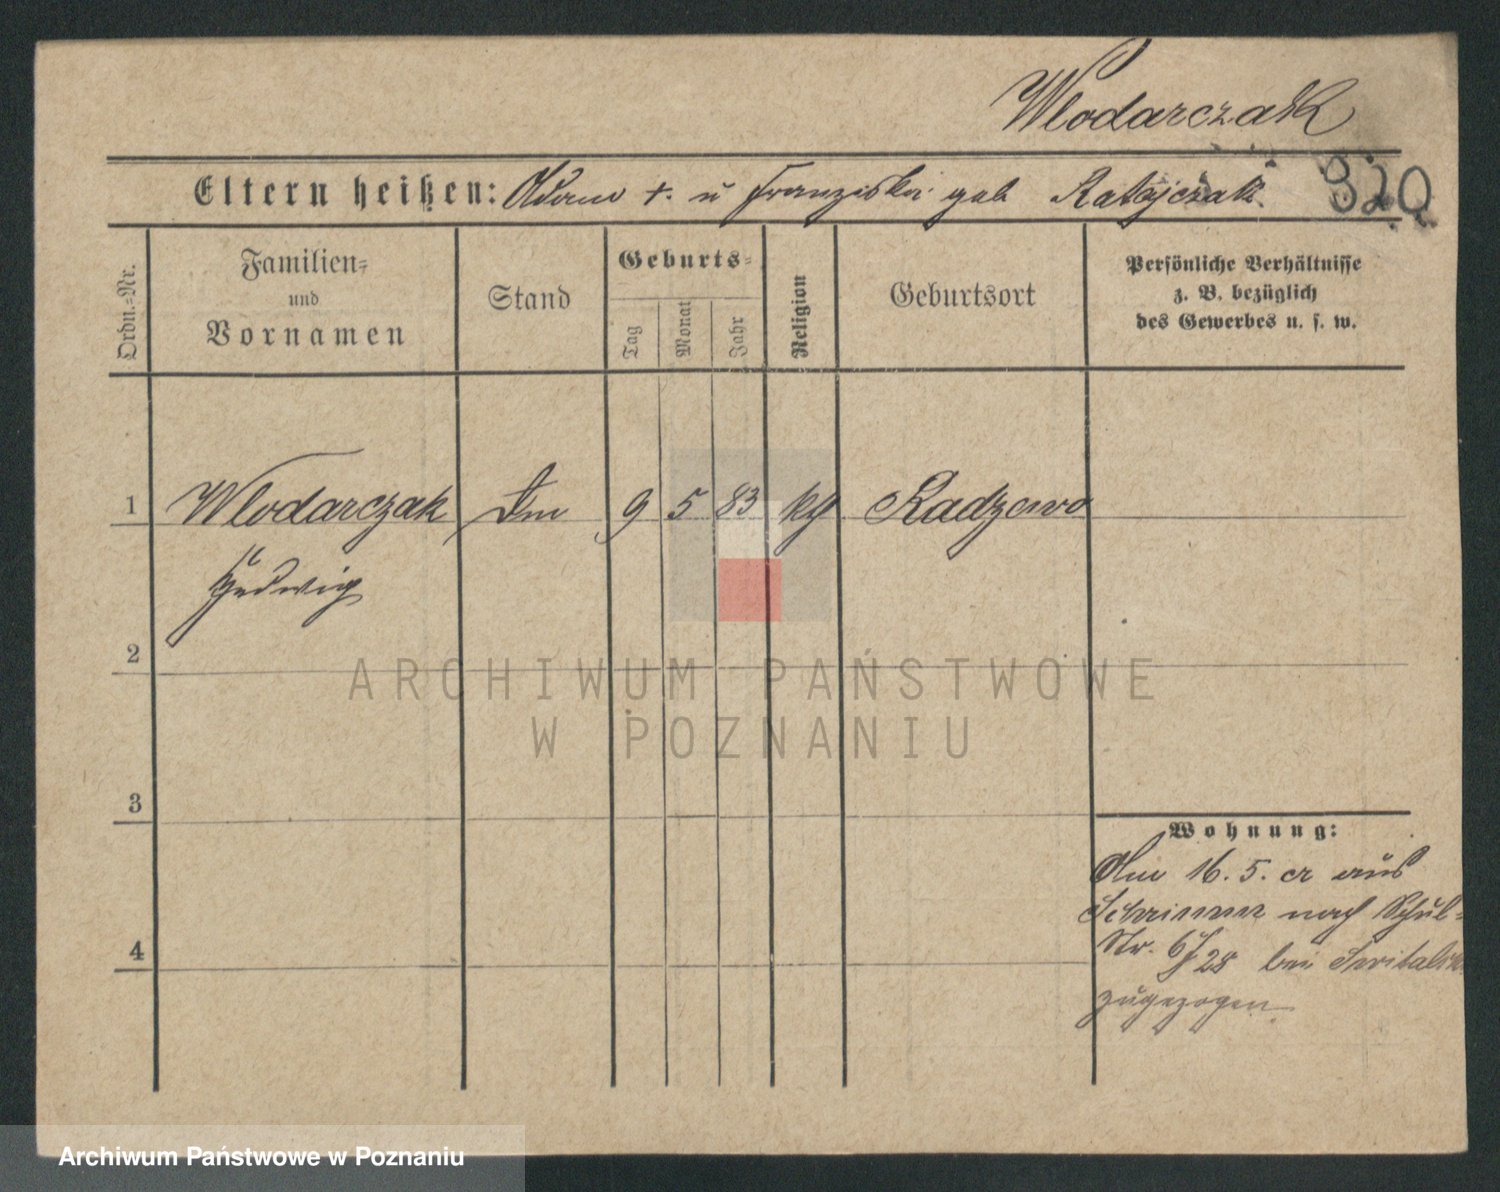 Wlodarczak
Eltern heißen: Adam +. u Franziska geb Ratajczak 320
Ordn.=Nr.
Familien=
und
Vornamen
Stand
Geburts=
Tag
Monat
Jahr
Religion
Geburtsort
Persönliche Verhältnisse
z. B. bezüglich
des Gewerbes u. s. w.
1 Wlodarczak 9 5 83 kg Radzewo
Hedwig
2
ARCHIWUM PAŃSTWOWE
W POZNANIU
3
Wohnung:
Am 16. 5. cr aus
Schrimm nach Schul=
Str. 6/7 28 bei
4
zugezogen.
Archiwum Państwowe w Poznaniu